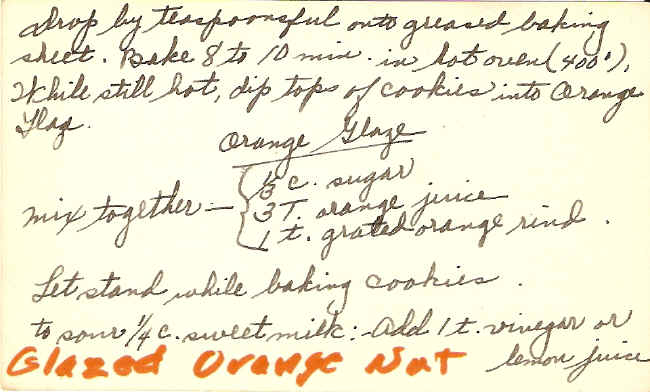 drop by teaspoonsful onto greased baking
sheet. Bake 8 to 10 min. in hot oven (400°),
While still hot, dip tops of cookies into Orange
Glaz.
Orange Glaze
mix together – { ⅓ c. sugar
3 T. orange juice
1 t. grated orange rind.
Let stand while baking cookies.
to sour ¼ c. sweet milk:- Add 1 t. vinegar or
lemon juice
Glazed Orange Nut